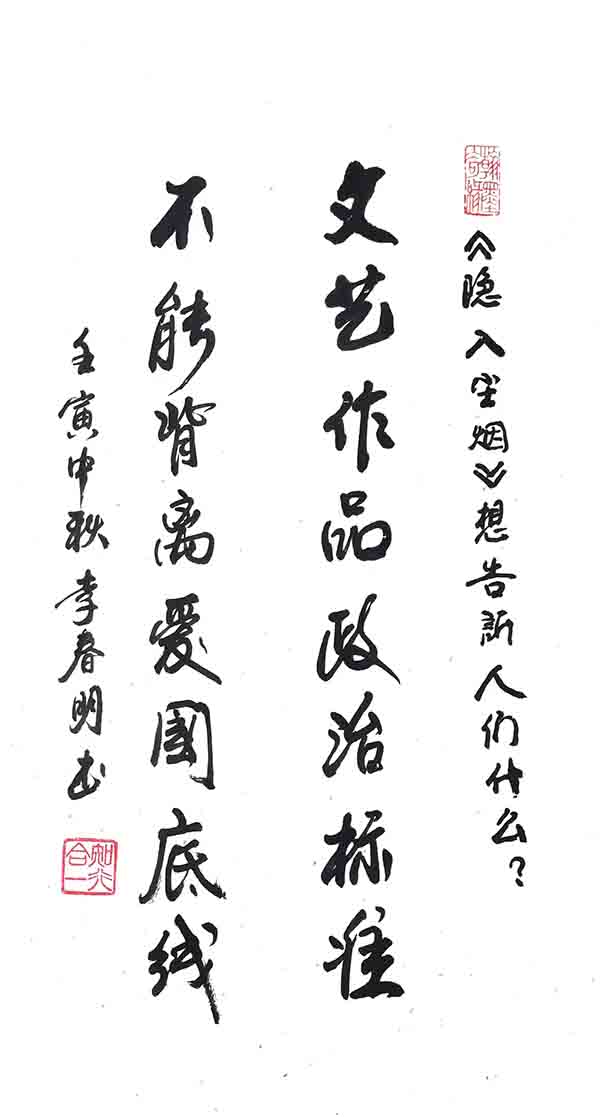 《隐入尘烟》想告诉人们什么？
文艺作品政治标准
不能背离爱国底线
壬寅中秋李春明书
知行合一